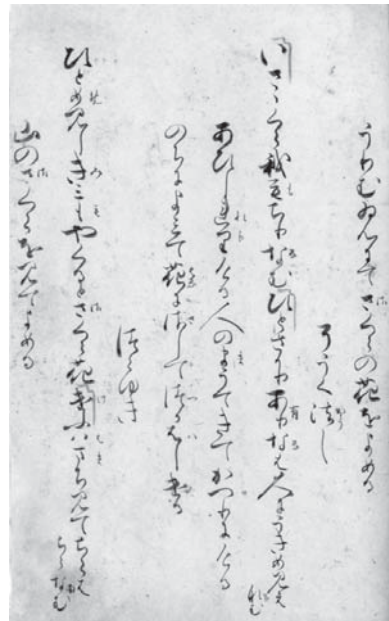 うりむゐんにてさくらの花をよめる
そうく法し
いさゝくら我もちりなむひとさかりありなは人にうきめ見え
なむ
あひしれりける人のまうてきてかへりにける
のちによみて花にさしてつかはしける
つらゆき
ひとめ見しきみもやくるとさくら花けふはまち見てちらは
ちらなむ
山のさくらを見てよめる